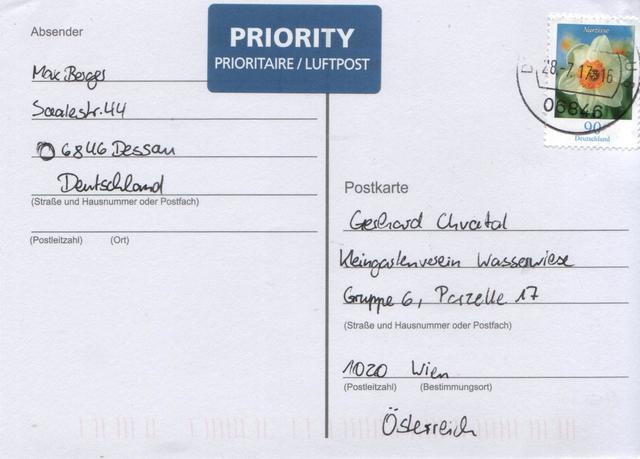 Absender
PRIORITY
PRIORITAIRE / LUFTPOST
Max Berges
Saalestr. 44
06846 Dessau
Deutschland
(Straße und Hausnummer oder Postfach)
(Postleitzahl) (Ort)
Narzisse
28.-7.17-16
06846
90
Deutschland
Postkarte
Gerhard Chvatal
Kleingartenverein Wasserwiese
Gruppe 6, Parzelle 17
(Straße und Hausnummer oder Postfach)
1020 Wien
(Postleitzahl) (Bestimmungsort)
Österreich